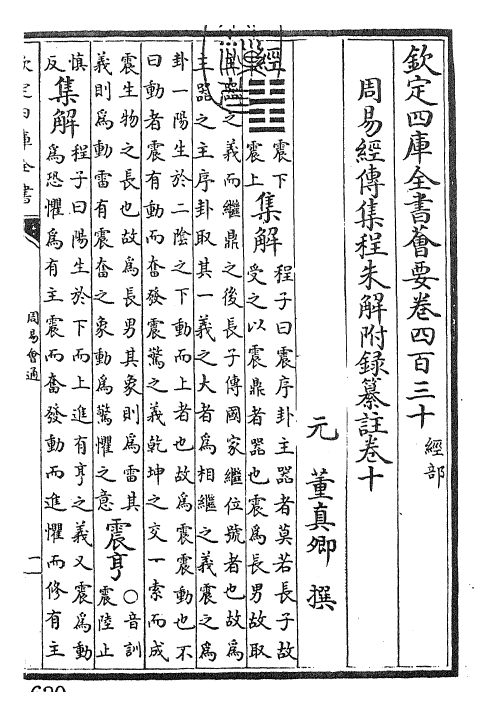 欽定四庫全書薈要卷四百三十 經部
周易經傳集程朱解附録纂註卷十
元 董真卿 撰
經
震下
震上
集解
程子曰震序卦主器者莫若長子故
受之以震鼎者器也震爲長男故取
主器之義而繼鼎之後長子傳國家繼位號者也故爲
主器之主序卦取其一義之大者爲相繼之義震之爲
卦一陽生於二陰之下動而上者也故爲震震動也不
曰動者震有動而奮發震驚之義乾坤之交一索而成
震生物之長也故爲長男其象則爲雷其
義則爲動雷有震奮之象動爲驚懼之意
震亨
○音訓
震陸止
慎
反
集解
程子曰陽生於下而上進有亨之義又震爲動
爲恐懼爲有主震而奮發動而進懼而修有主
欽定四庫全書
周易會通
一